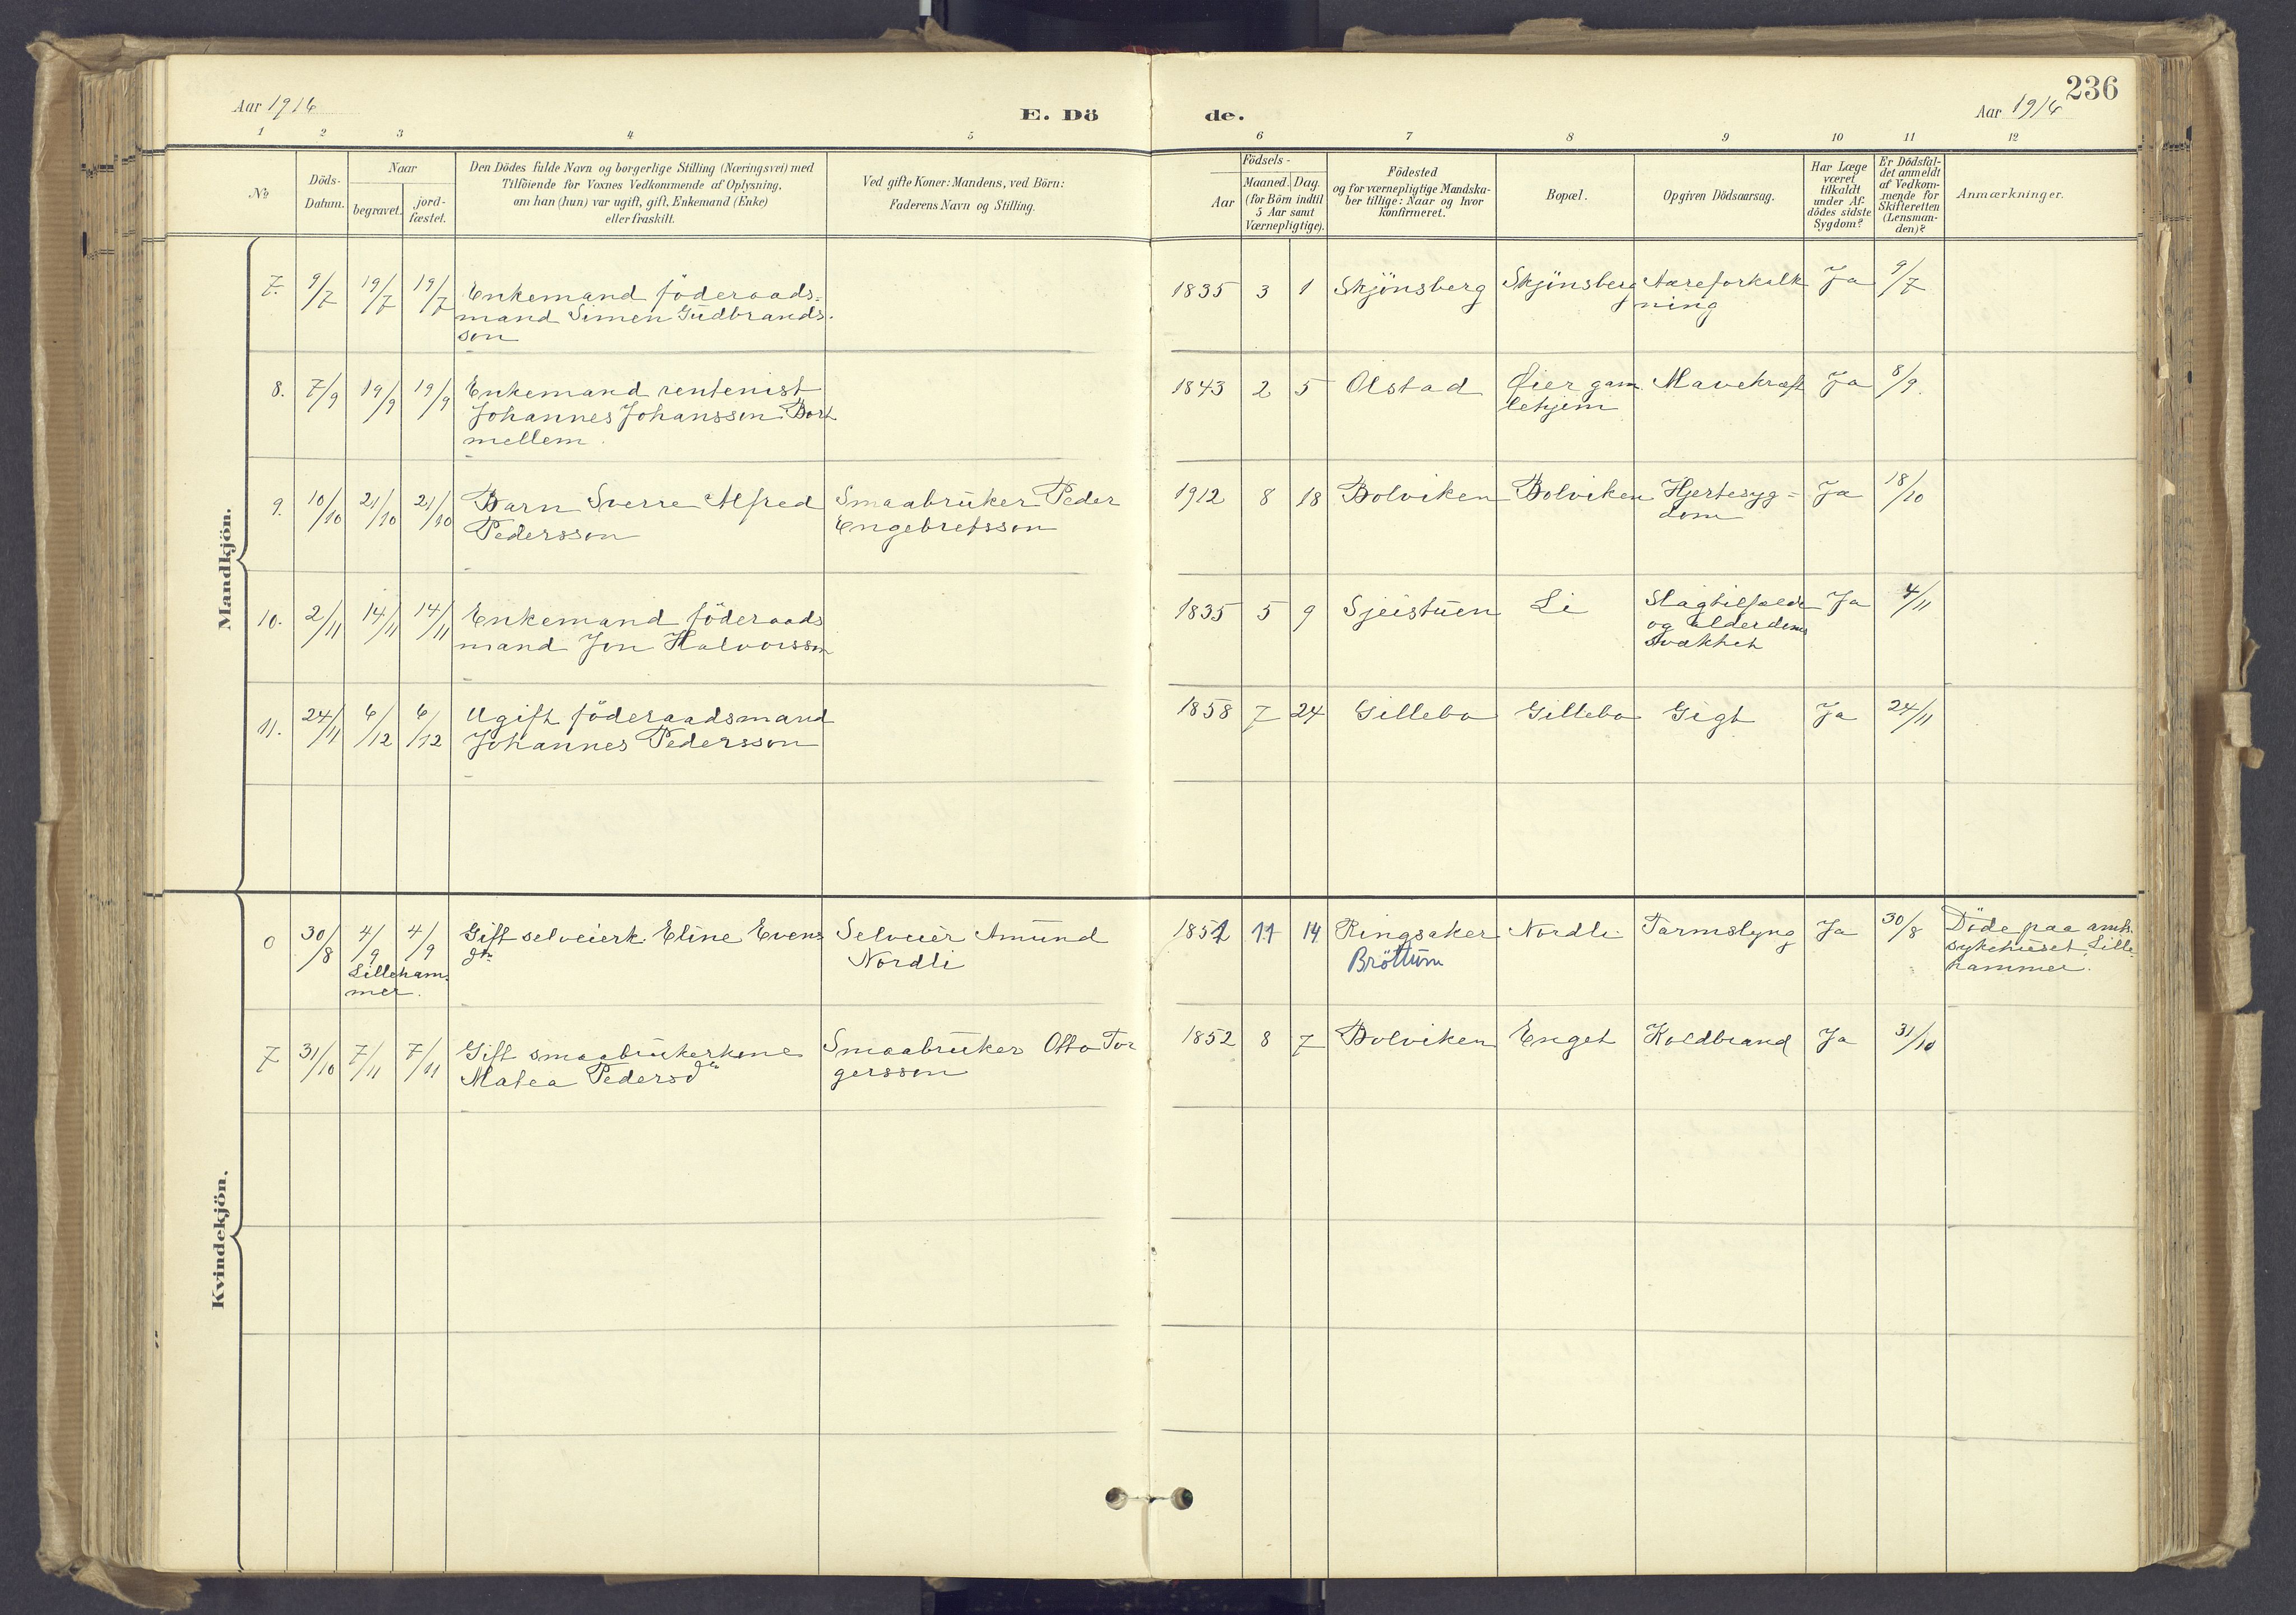 236
Aar 1916
E. Döde.
Aar 1916
1 2 3 4 5 6 7 8 9 10 11 12
No
Döds-
Datum.
Naar
begravet.
jord-
fæstet.
Den Dödes fulde Navn og borgerlige Stilling (Næringsvei) med
Tilföiende for Voxnes Vedkommende af Oplysning,
om han (hun) var ugift, gift, Enkemand (Enke)
eller fraskilt.
Ved gifte Koner: Mandens, ved Börn:
Faderens Navn og Stilling.
Födsels-
Aar
Maaned. Dag.
(for Börn indtil
5 Aar samt
Værnepligtige).
Födested
og for værnepligtige Mandska-
ber tillige: Naar og hvor
konfirmeret.
Bopæl.
Opgiven Dödsaarsag.
Har Læge
været
tilkaldt
under Af-
dödes sidste
Sygdom?
Er Dödsfal-
det anmeldt
af Vedkom-
mende for
Skifteretten
(Lensman-
den)?
Anmærkninger.
Mandkjön.
7. 9/7 19/7 19/7 Enkemand föderaads-
mand Simen Gudbrands-
son
1835 3 1 Skjönsberg Skjönsberg Aareforkalk
ning
Ja 9/7
8. 7/9 19/9 19/9 Enkemand rentenist
Johannes Johanssen Bort
mellem.
1843 2 5 Olstad Öier gam
lehjem
Mavekræft Ja 8/9.
9. 10/10 21/10 21/10 Barn Sverre Alfred
Pedersson
Smaabruker Peder
Engebretsson
1912 8 18 Bolviken Bolviken Hjertesyg=
dom
Ja 18/10
10. 2/11 14/11 14/11 Enkemand föderaads
mand Jon Halvorsson
1835 5 9 Sjeistuen Li Slagtilfælde
og alderdoms
svakhet
Ja 4/11
11. 24/11 6/12 6/12 Ugift föderaadsmand
Johannes Pedersson
1858 7 24 Gillebo Gillebo Gigt Ja 24/11
Kvindekjön.
30/8 4/9 4/9 Gift selveierk. Eline Evens
dtr
Lilleham
mer.
Selveier Amund
Nordli
1851 11 14 Ringsaker
Bröttum
Nordli Tarmslyng Ja 30/8 Döde paa amts
sykehuset, Lille-
hammer.
7 31/10 7/11 7/11 Gift smaabrukerkone
Matea Pedersdtr
Smaabruker Otto Tor
gersson
1852 8 7 Bolviken Enget Koldbrand Ja 31/10